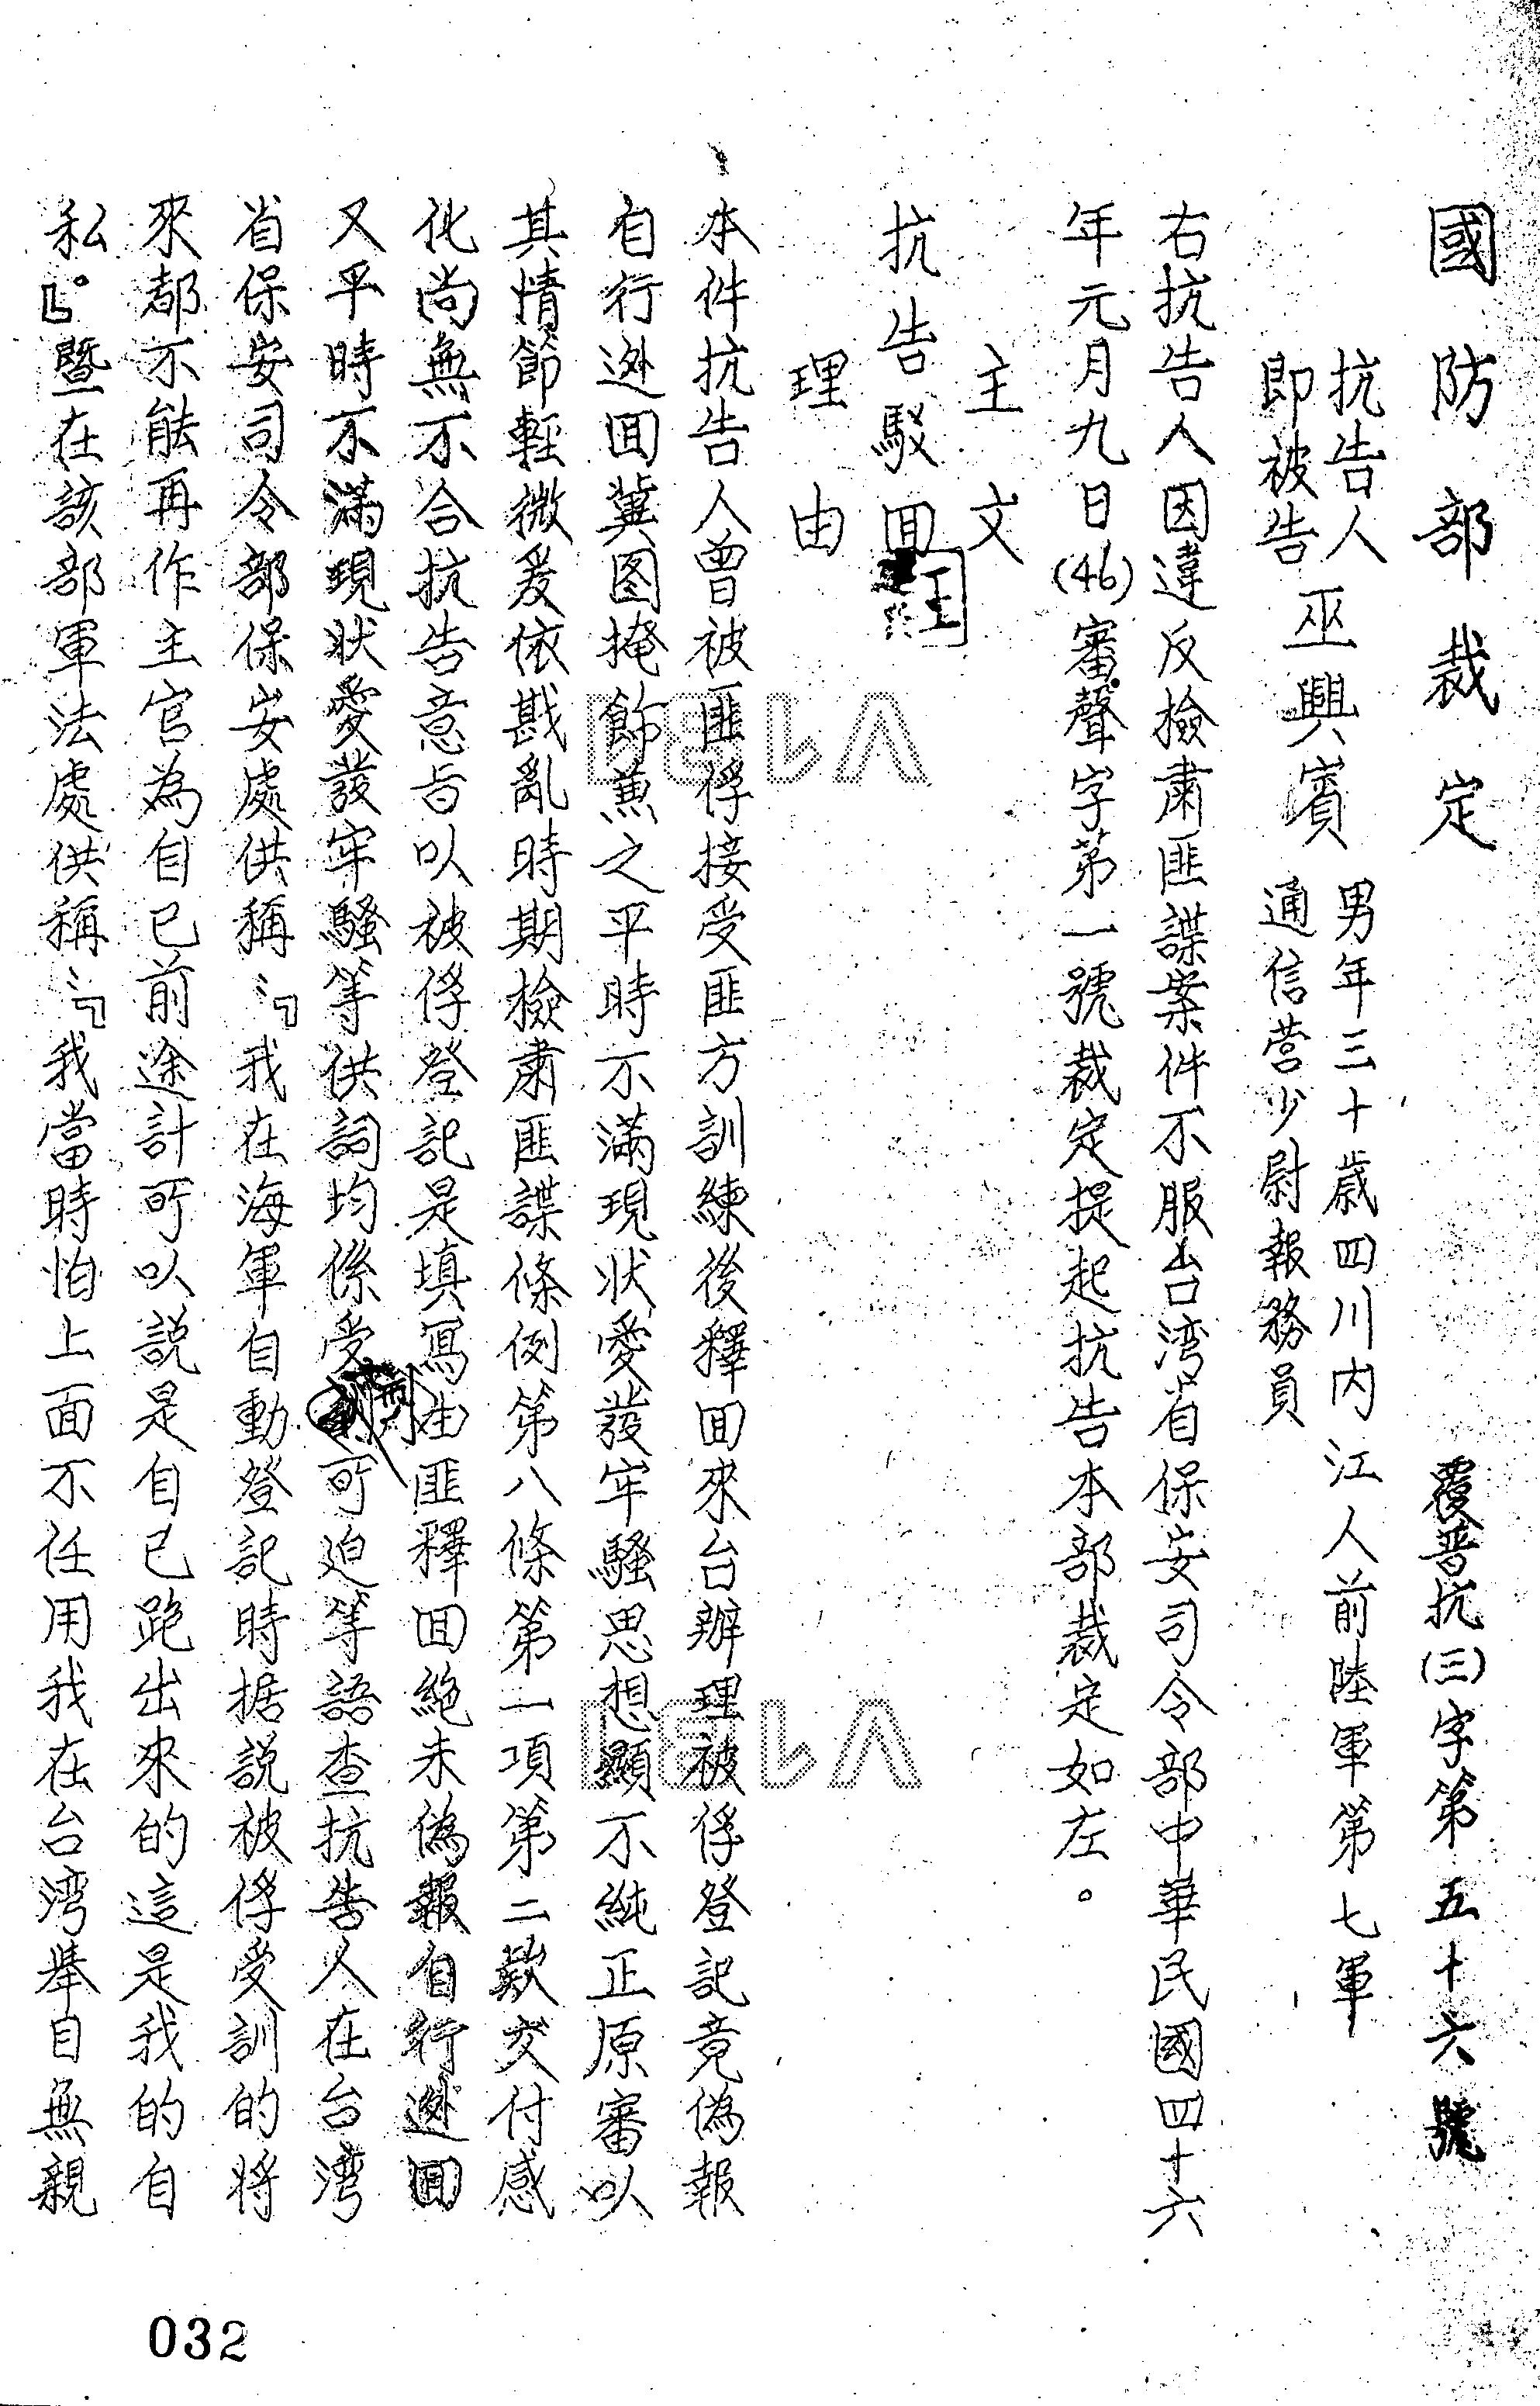 國防部裁定
覆普抗(三)字第五十六號
抗告人
即被告
巫興賓
男年三十歲四川內江人前陸軍第七軍
通信营少尉報務員
右抗告人因違反檢肅匪諜案件不服台湾省保安司令部中華民國四十六
年元月九日(46)審聲字第一號裁定提起抗告本部裁定如左。
主文
抗告駁回
理由
本件抗告人曾被匪俘接受匪方訓練後釋回來台辦理被俘登記竟偽報
自行逃回冀图掩飾蕉之平時不滿現狀愛發牢騷思想顯不純正原審以
其情節輕微爰依戡亂時期檢肅匪諜條例第八條第一項第二款交付感
化尚無不合抗告意旨以被俘登記是填寫由匪釋回絕未偽報自行逃回
又平時不滿現狀愛發牢騷等供詞均係受 可迫等語查抗告人在台湾
省保安司令部保安處供稱:「我在海軍自動登記時据説被俘受訓的將
來都不能再作主官為自己前途計可以說是自己跑出來的這是我的自
私。」暨在該部軍法處供稱:「我當時怕上面不任用我在台湾舉目無親
032
V1B1
V1B1